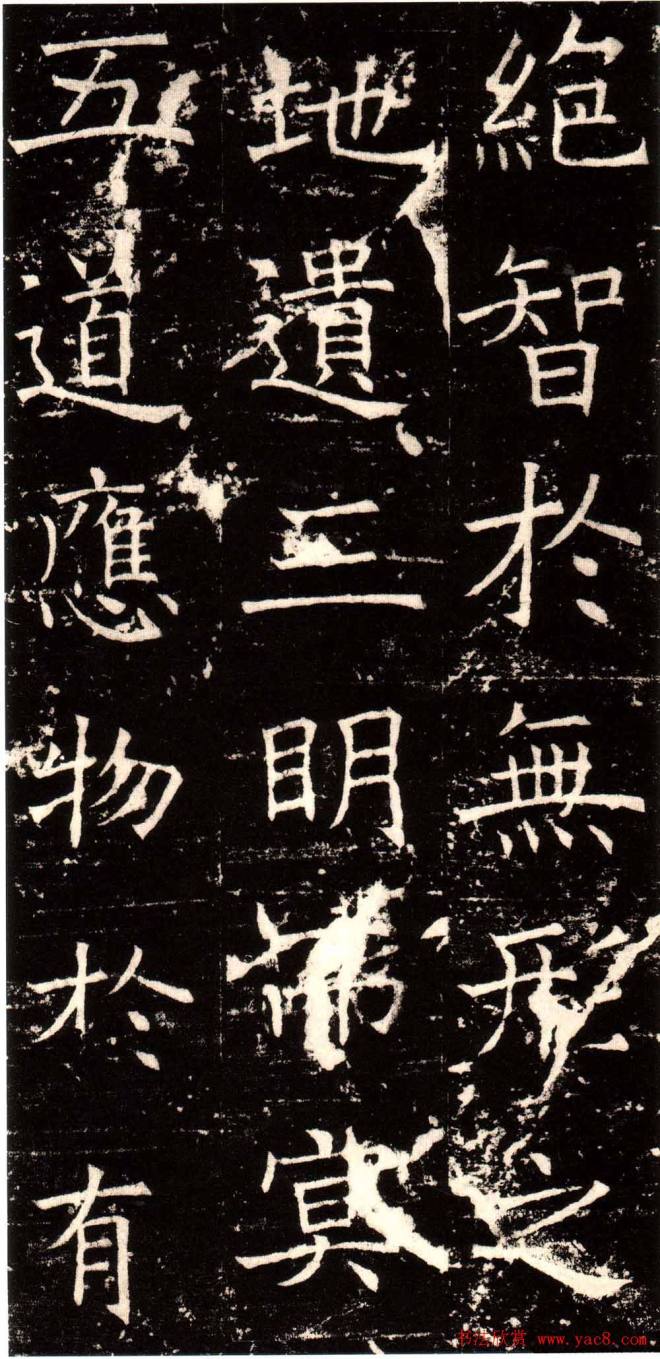 絶智於無形之
地遺三眀冥
五道應物於有
书法欣赏 www.yac8.com